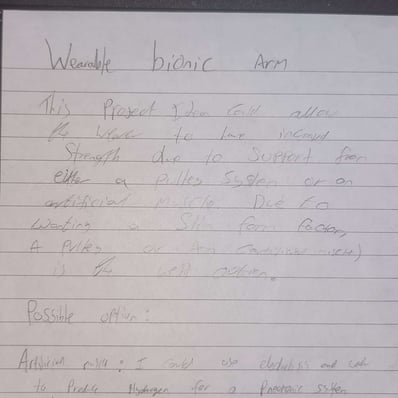 Wearable bionic Arm
This Project Idea Could allow
the wearer to have increased
Strength due to Support from
either a pulley System or an
artificial muscle. Due to
wanting a Slim form factor,
A Pulley or Am (artificial muscle)
is the well option.
Possible option:
Artificial muscle: I could use electrolisis and
to Produce Hydrogen for a Pneumonic System